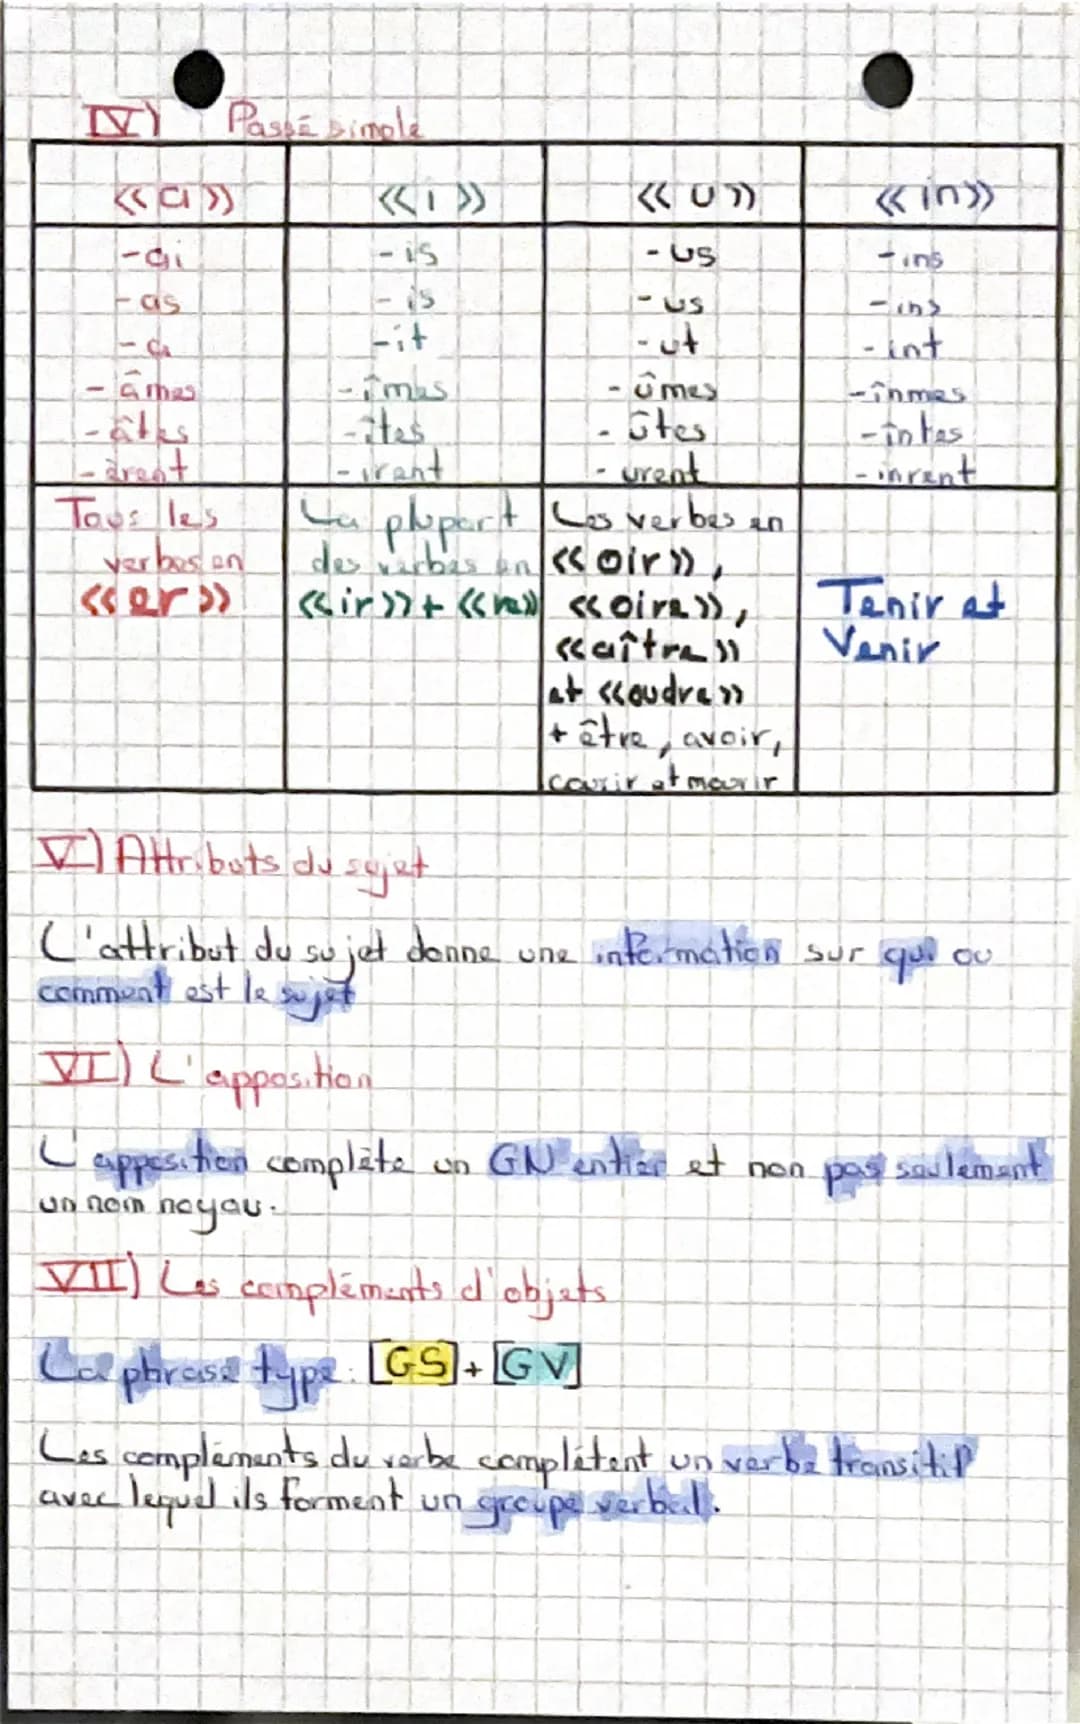 IV) Passé simple
« a » « i » « u » « in »
-ai -is -us -ins
-as -is -us -ins
-a -it -ut -int
-âmes -îmes -ûmes -înmes
-âtes -îtes -ûtes -întes
-èrent -irent -urent -inrent
Tous les
verbes en
« er »
La plupart
des verbes en
« ir » + « re »
Les verbes en
« oir »,
« oire »,
« aître »
et « oudre »
+ être, avoir,
courir et mourir
Tenir et
Venir
V) Attributs du sujet
L'attribut du sujet donne une information sur qui ou
comment est le sujet
VI) L'apposition
L'apposition complète un GN entier et non pas seulement
un nom noyau.
VII) Les compléments d'objets
La phrase type : [GS] + [GV]
Les compléments du verbe complètent un verbe transitif
avec lequel ils forment un groupe verbal.